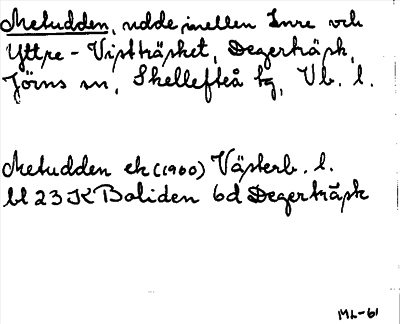 Metudden, udde mellan Inre och
Yttre-Vistträsket, Degerträsk,
Jörns sn, Skellefteå tg, Vb. l.
Metudden ek (1960) Västerb. l.
bl 23 K Boliden 6d Degerträsk
ML-61